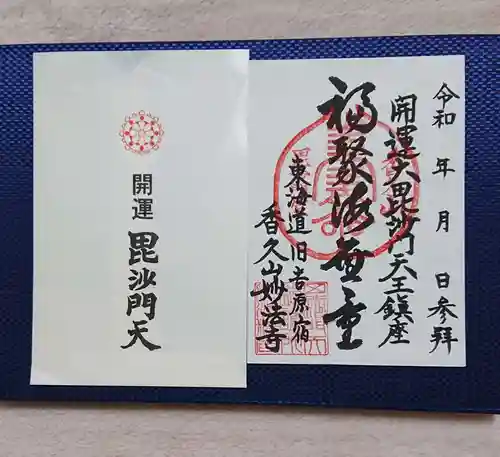 開運
毘沙門天
令和 年 月 日参拝
開運大毘沙門天王鎮座
福聚海無量
東海道旧吉原宿
香久山妙法寺